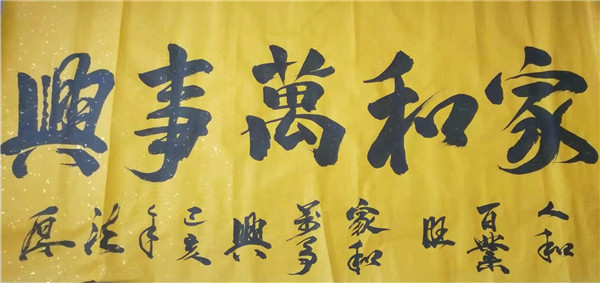 家和萬事興
人和百業旺家和萬事興己亥年法